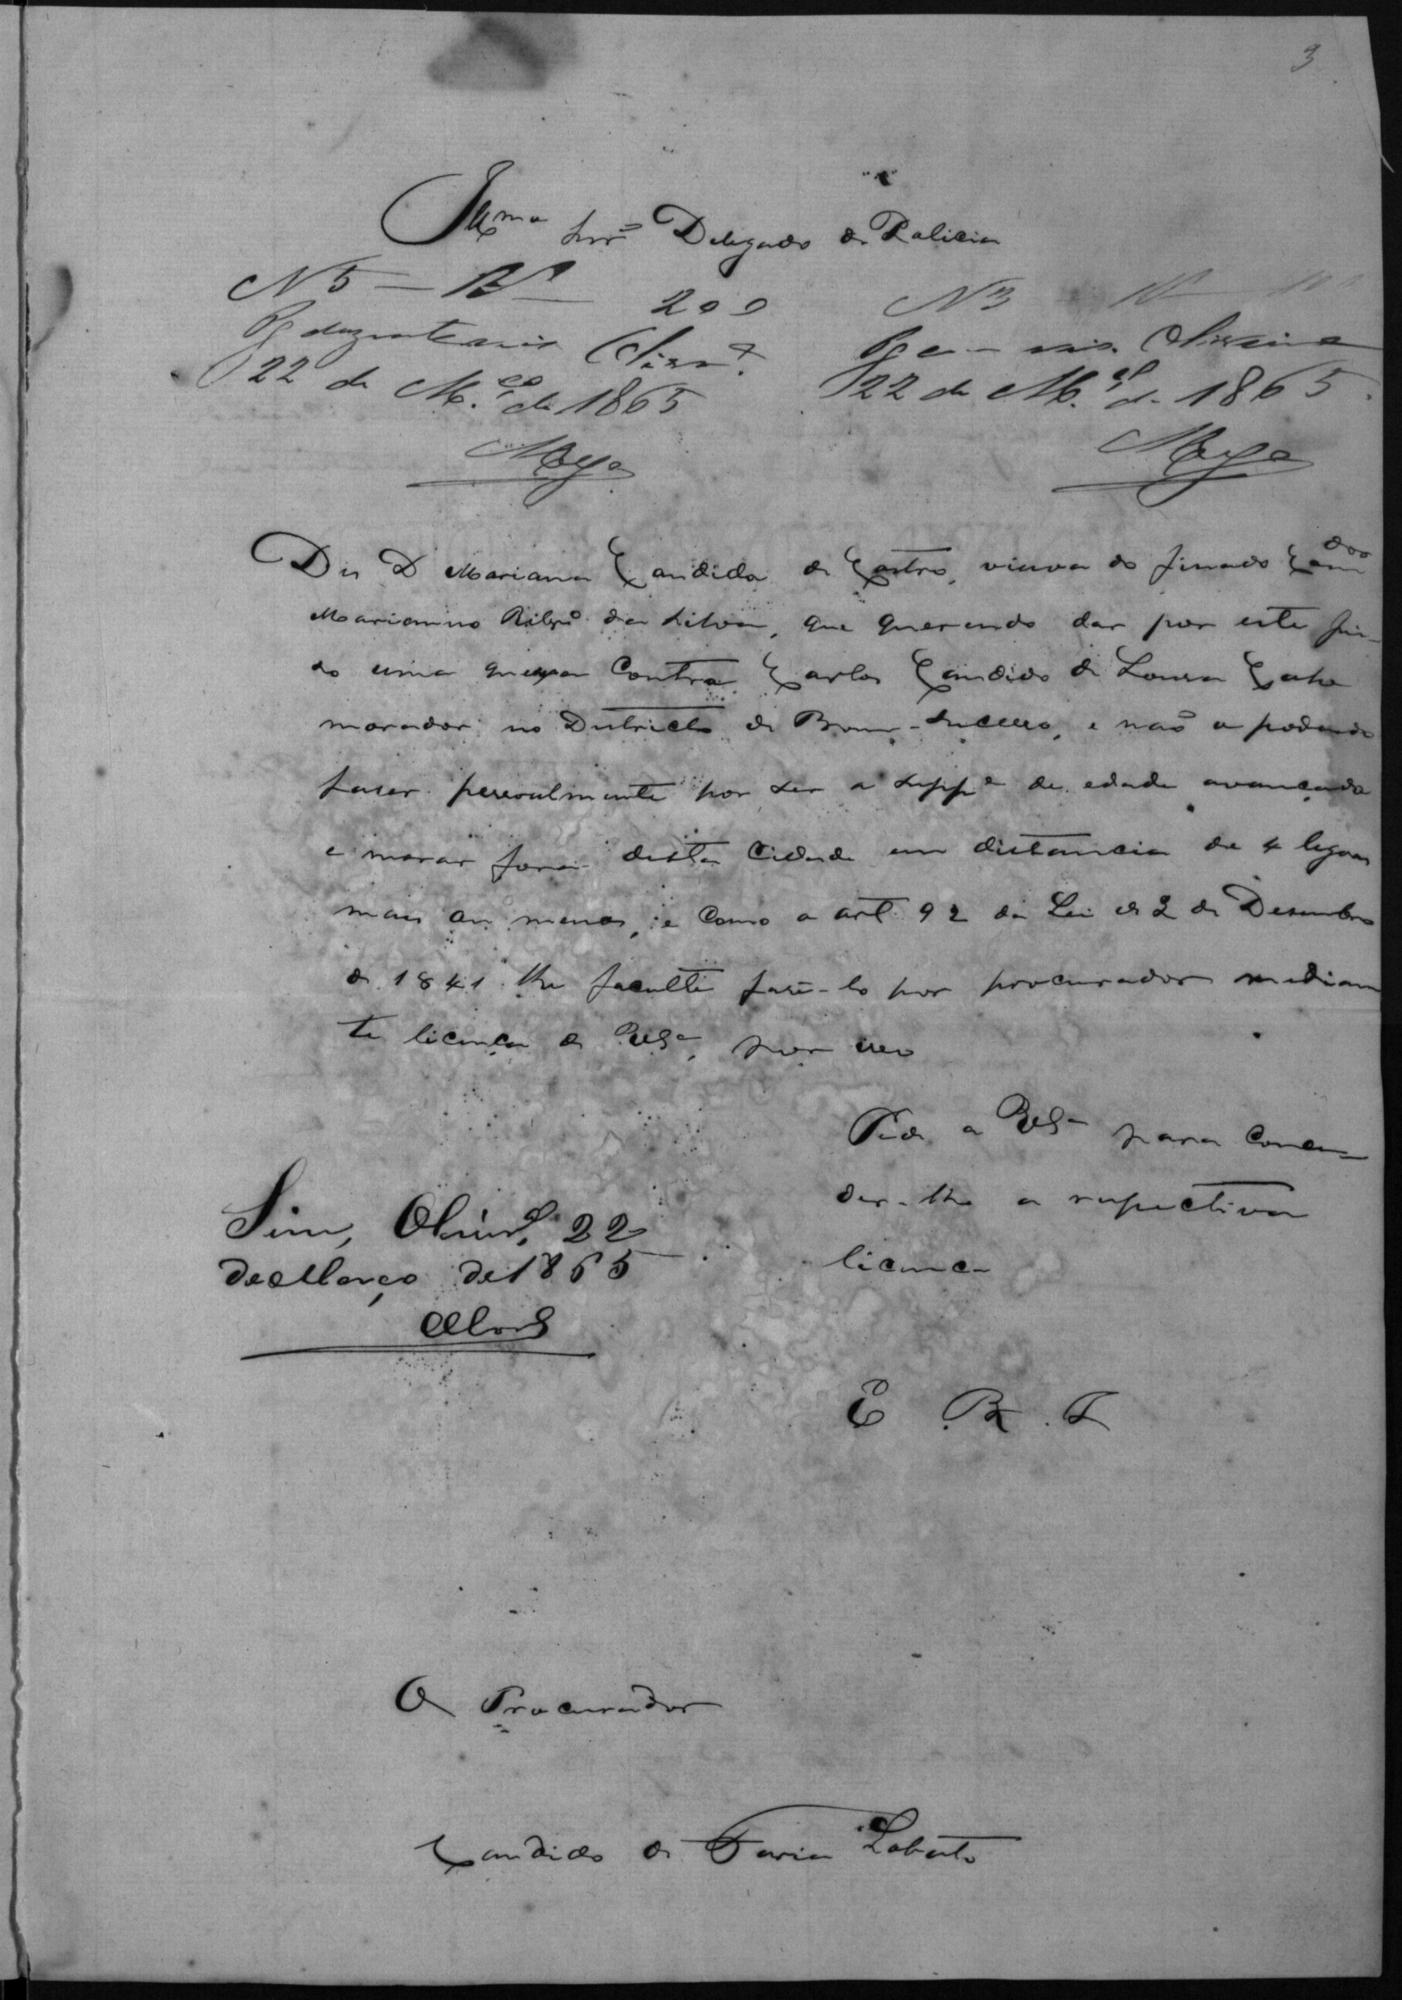 3
Illmo Snr Delegado de Policia
N 5 — Rs — 200
Pg duzentos reis Olivrª
22 de M.ço de 1865
Moya
N 3
Pg reis. Oliveira
22 de M.ço de 1865
Moya
Diz D Marianna Candida de Castro, viuva do finado Candido
Marianno Ribrº da Silva, que querendo dar por este Jui-
so uma queixa contra Carlos Candido de Sousa
morador no Districto de Bom-Sucesso, e não a podendo
faser pessoalmente por ser a Suppe de edade avançada
e morar fora desta Cidade em distancia de 4 legoas
mais ou menos, e como o art. 92 da Lei de 2 de Desembro
de 1841 lhe faculte fasê-lo por procurador median
te licença de VSª, por isso
Pede a VSª para conce-
der-lhe a respectiva
licença
Sim, Olivrª, 22
de Março de 1865
E. R. J.
O Procurador
Candido de Faria Lobato